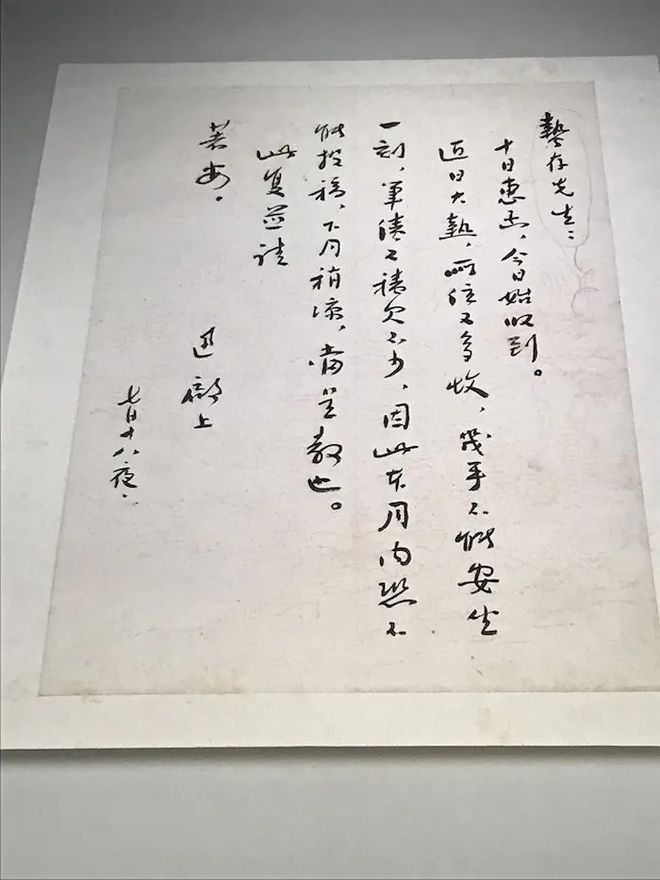 蟄存先生：
十日惠函，今日始收到。
近日大熱，所住又多蚊，幾乎不能安坐
一刻，筆債又積欠不少，因此本月內恐不
能投稿，下月稍涼，當呈教也。
此复並請
著安。
迅 頓上
七月十八夜。